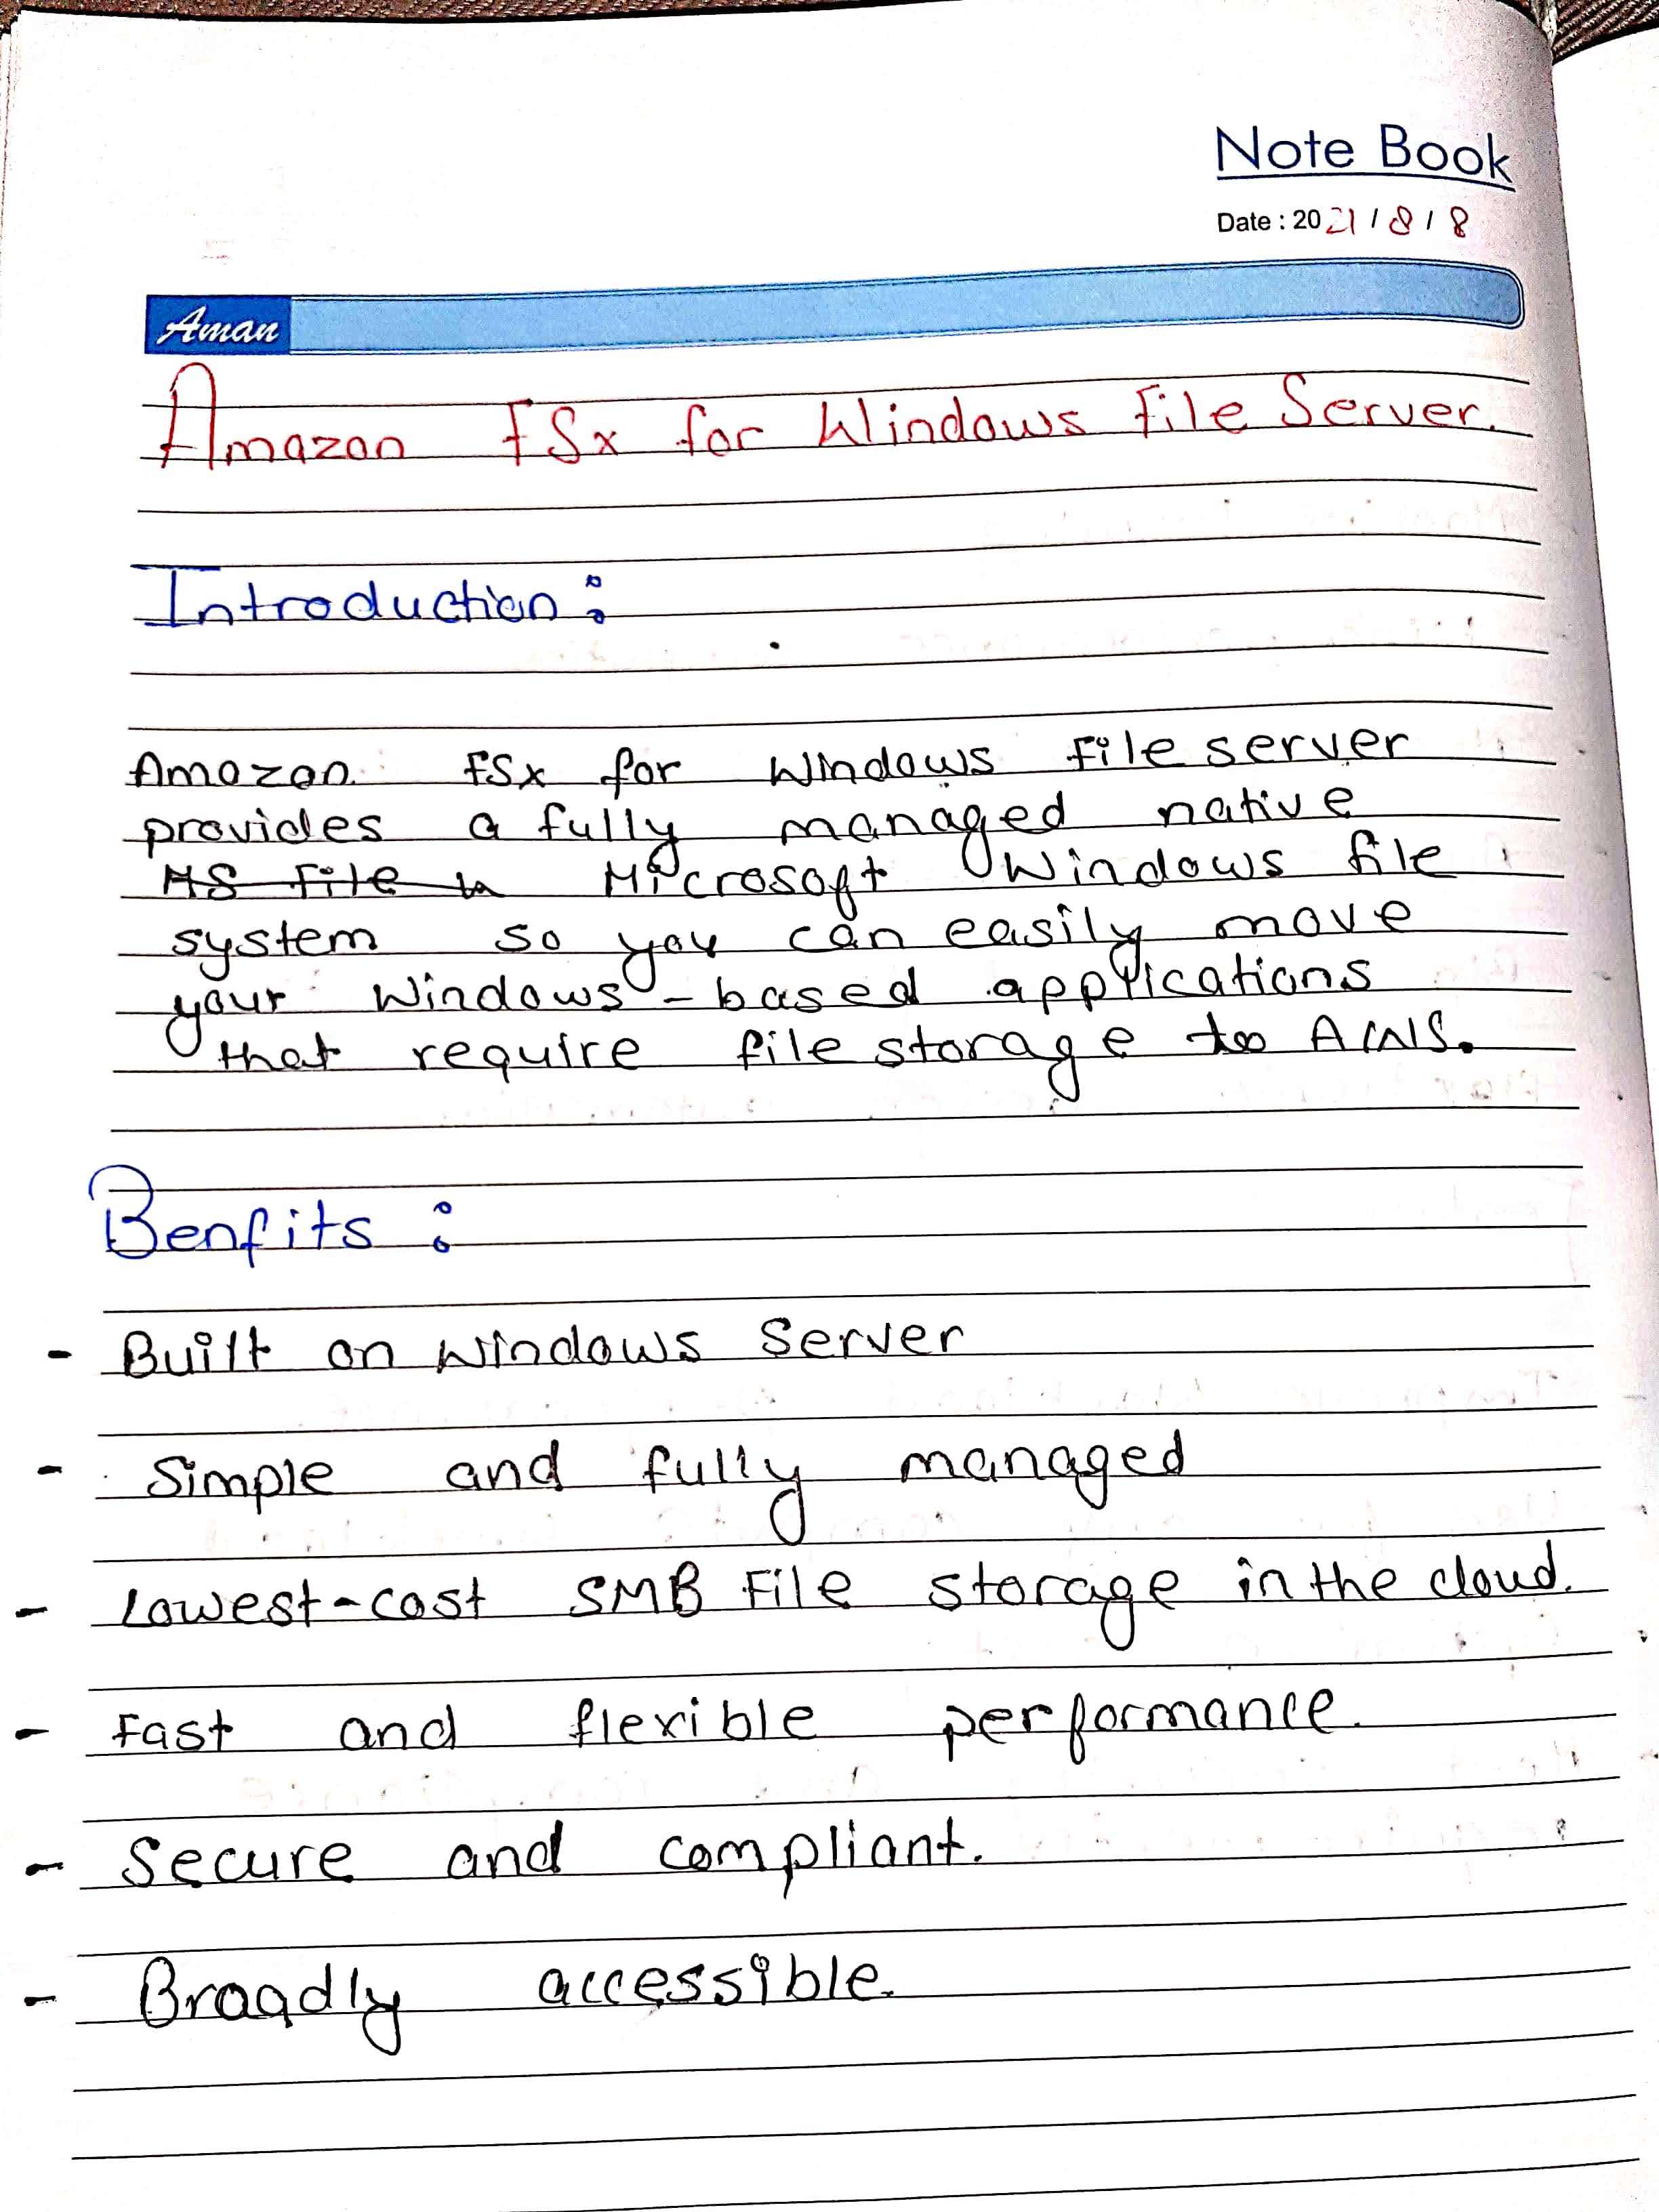 Note Book
Date : 2021 / 8 / 8
Aman
Amazon FSx for Windows File Server.
Introduction :
Amazon FSx for Windows File server
provides a fully managed native
Microsoft Windows file
system so you can easily move
your Windows-based applications
that require file storage to AWS.
Benfits :
- Built on Windows Server
- Simple and fully managed
- Lowest-cost SMB File storage in the cloud.
- Fast and flexible performance.
- Secure and compliant.
- Broadly accessible.